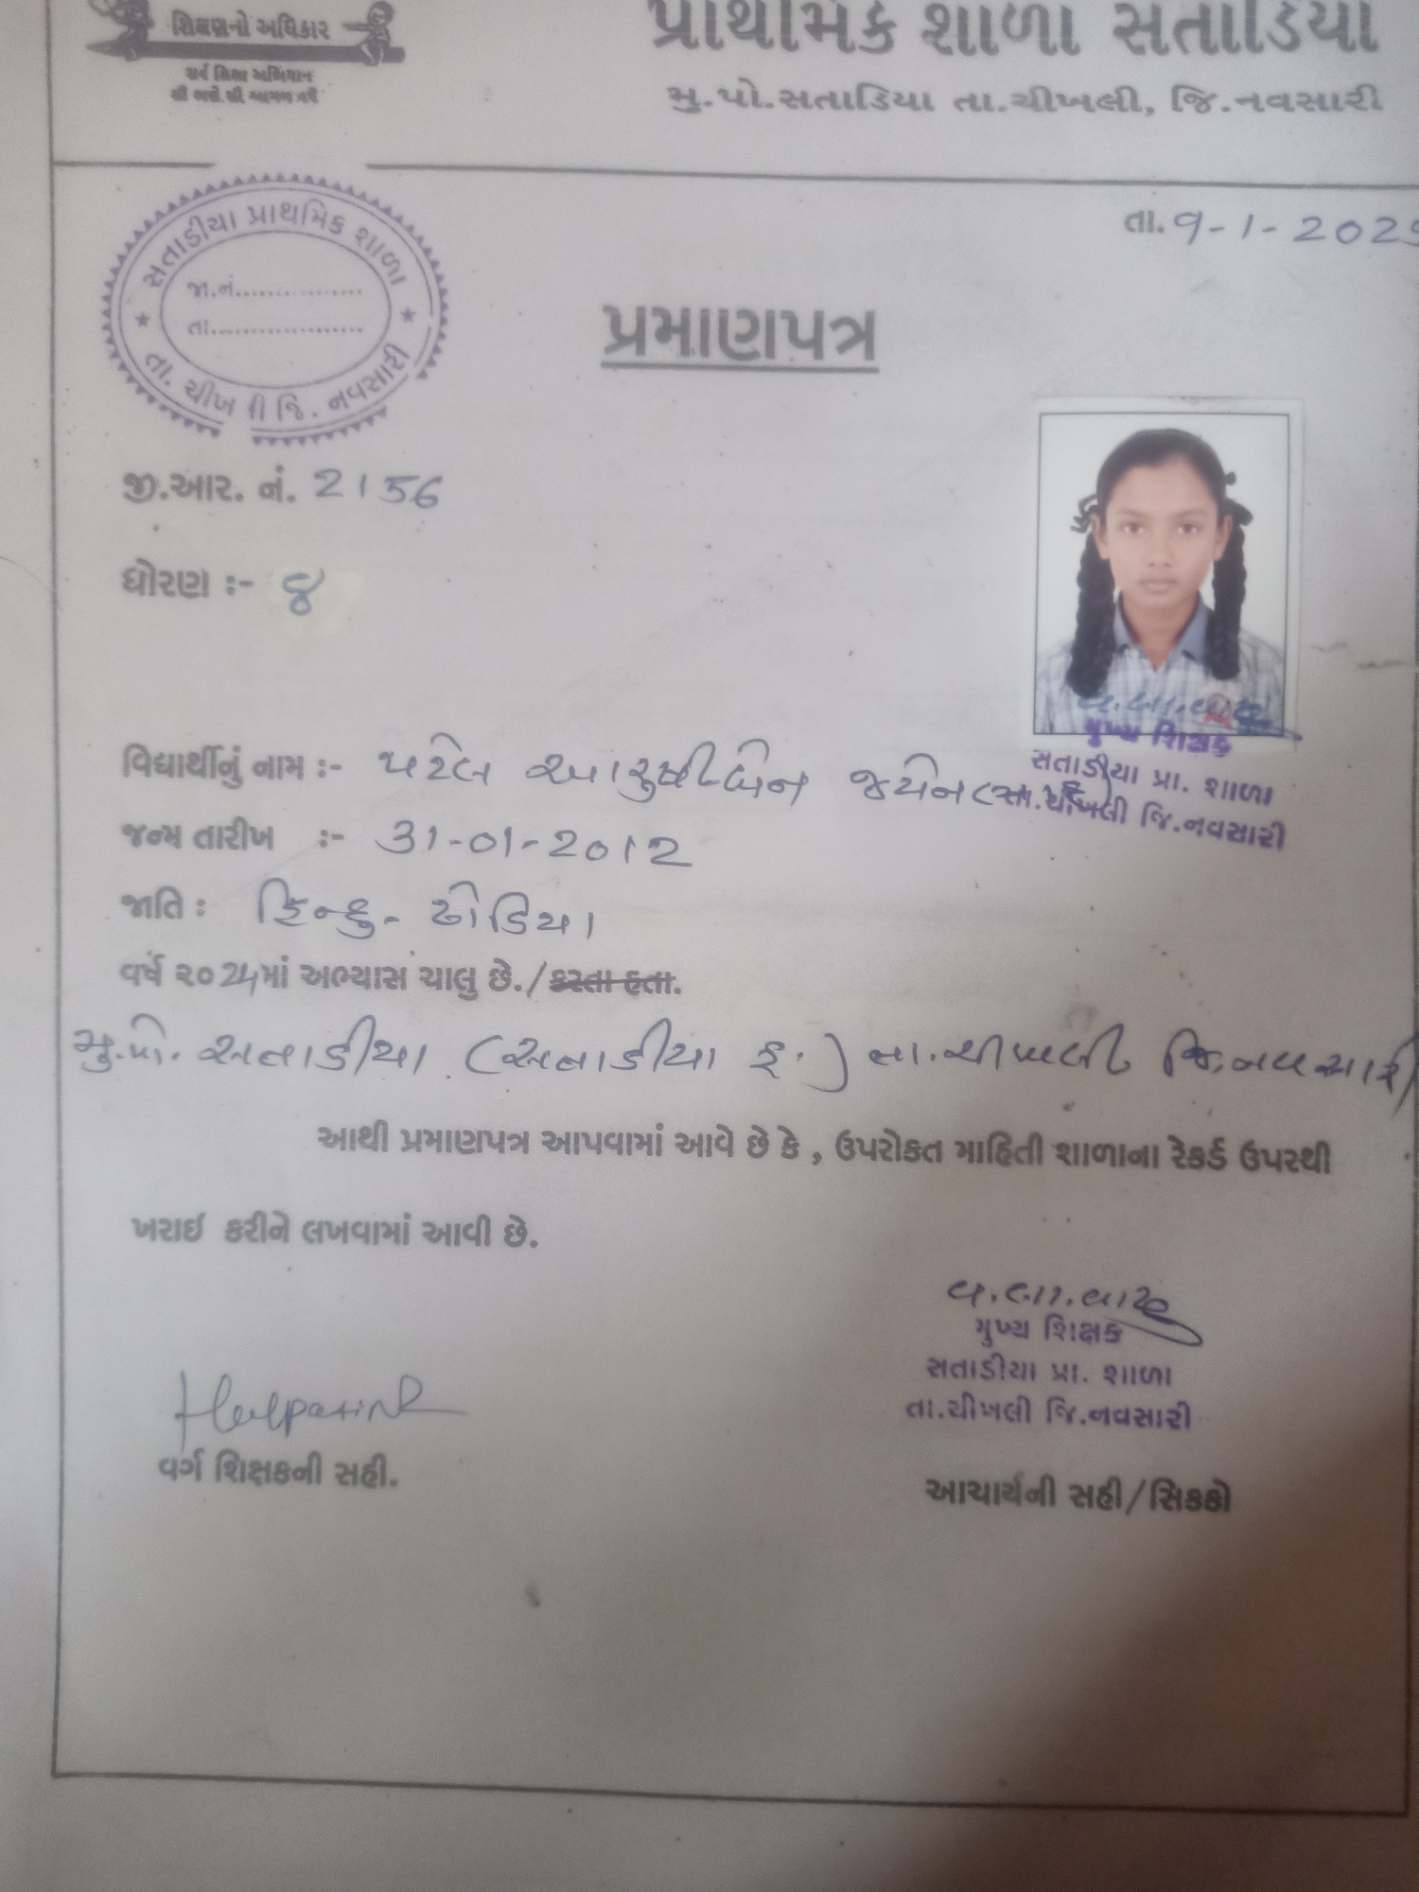 શિક્ષણનો અધિકાર
સર્વ શિક્ષા અભિયાન
પ્રાથમિક શાળા સતાડિયા
મુ.પો.સતાડિયા તા.ચીખલી, જિ.નવસારી
તા. 9-1-202
સતાડીયા પ્રાથમિક શાળા
જા.નં...............
તા....................
તા. ચીખ ી જિ. નવસારી
પ્રમાણપત્ર
જી.આર. નં. 2156
ધોરણ :- ૪
વિદ્યાર્થીનું નામ :- પટેલ આરુષીબેન
મુખ્ય શિક્ષક
સતાડીયા પ્રા. શાળા
તા.ચીખલી જિ.નવસારી
જન્મ તારીખ :- 31-01-2012
જાતિ : હિન્દુ - ઢોડિયા
વર્ષ ૨૦24માં અભ્યાસ ચાલુ છે./કરતા હતા.
મુ.પો. સતાડીયા (સતાડીયા ફ.) તા.ચીખલી જિ.નવસારી
આથી પ્રમાણપત્ર આપવામાં આવે છે કે , ઉપરોકત માહિતી શાળાના રેકર્ડ ઉપરથી
ખરાઈ કરીને લખવામાં આવી છે.
મુખ્ય શિક્ષક
સતાડીયા પ્રા. શાળા
તા.ચીખલી જિ.નવસારી
વર્ગ શિક્ષકની સહી.
આચાર્યની સહી/સિકકો